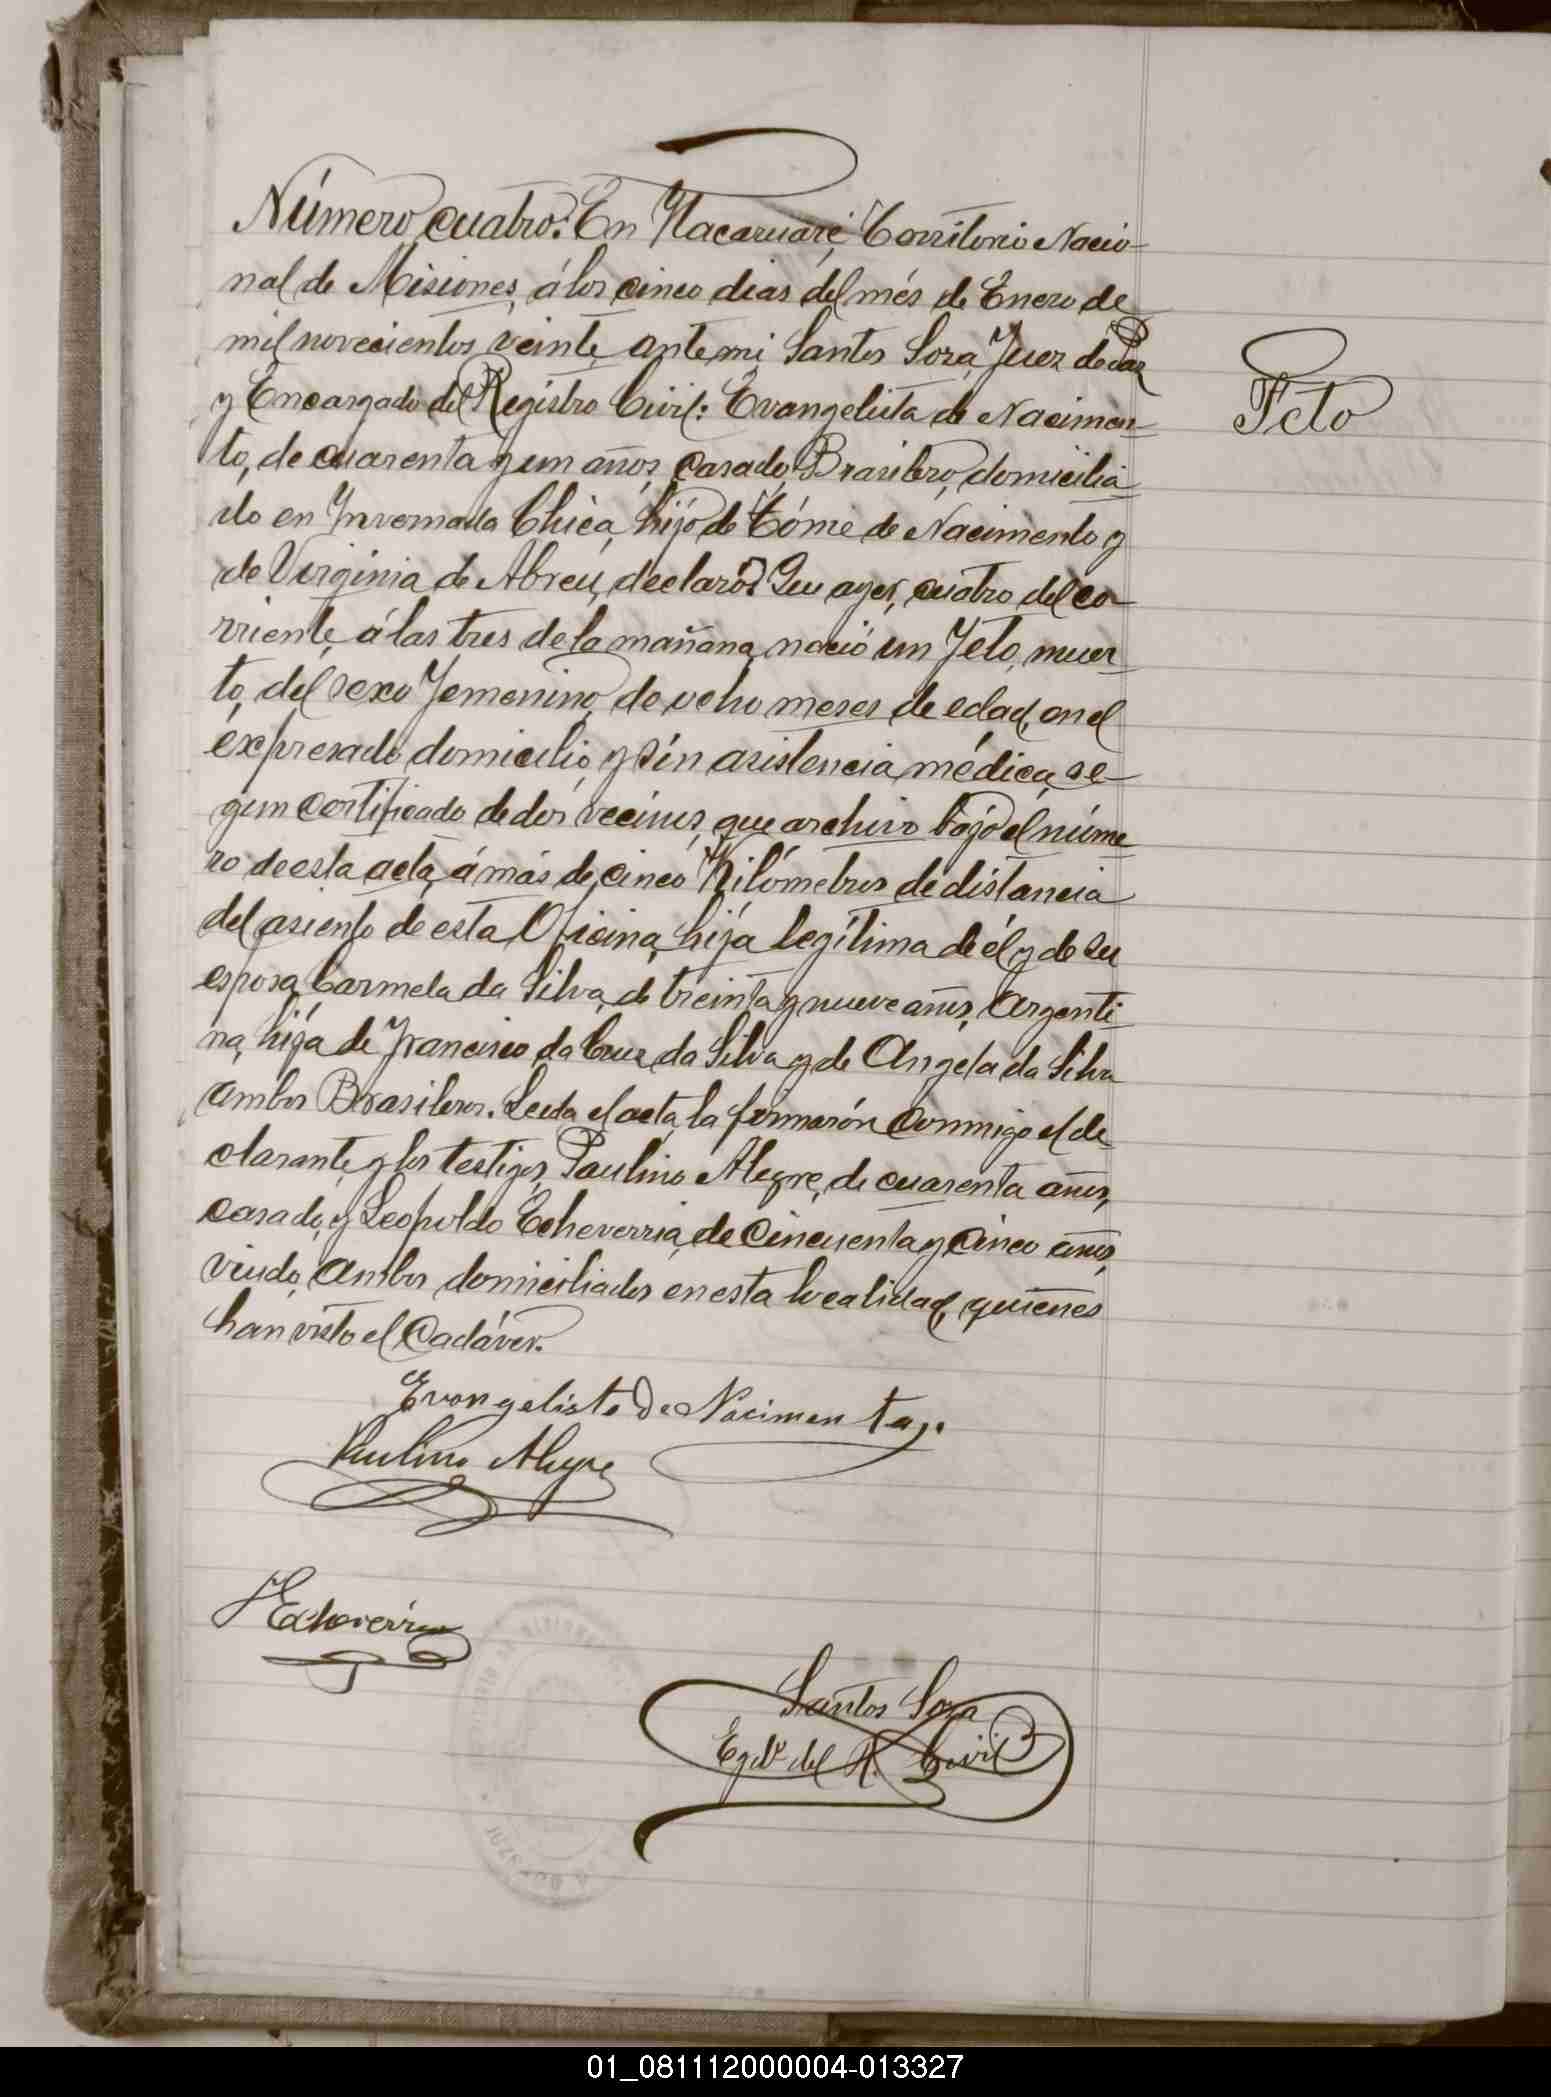 Número cuatro: En Itacaruaré, Territorio Nacio-
nal de Misiones, á los cinco dias del més de Enero de
mil novecientos veinte, ante mi Santos Sosa, Juez de Paz
y Encargado del Registro Civil: Evangelista de Nacimen-
to, de cuarenta y un años, casado, Brasilero, domicilia-
do en Invernada Chica, hijo de Tóme de Nacimento y
de Virginia de Abreu, declaró: Que ayer, cuatro del co-
rriente, á las tres de la mañana, nació un Feto, muer-
to, del sexo Femenino, de ocho meses de edad, en el
expresado domicilio, y sin asistencia médica, se-
gun certificado de dos vecinos, que archivo bajo el núme-
ro de esta acta, á más de cinco Kilómetros de distancia
del asiento de esta Oficina, hija legítima de él y de su
esposa Carmela da Silva, de treinta y nueve años, Argenti-
na, hija de Francisco da Cruz da Silva y de Angela da Silva
ambos Brasileros. Leida el acta, la firmarón conmigo el de-
clarante, y los testigos, Paulino Alegre, de cuarenta años,
casado, y Leopoldo Echeverria, de cincuenta y cinco años,
viudo, ambos domiciliados en esta localidad, quiénes
han visto el cadáver.
Feto
Evangelista De Nacimento
Paulino Alegre
LEcheverria
Santos Sosa
Egdo del R. Civil
01_081112000004-013327